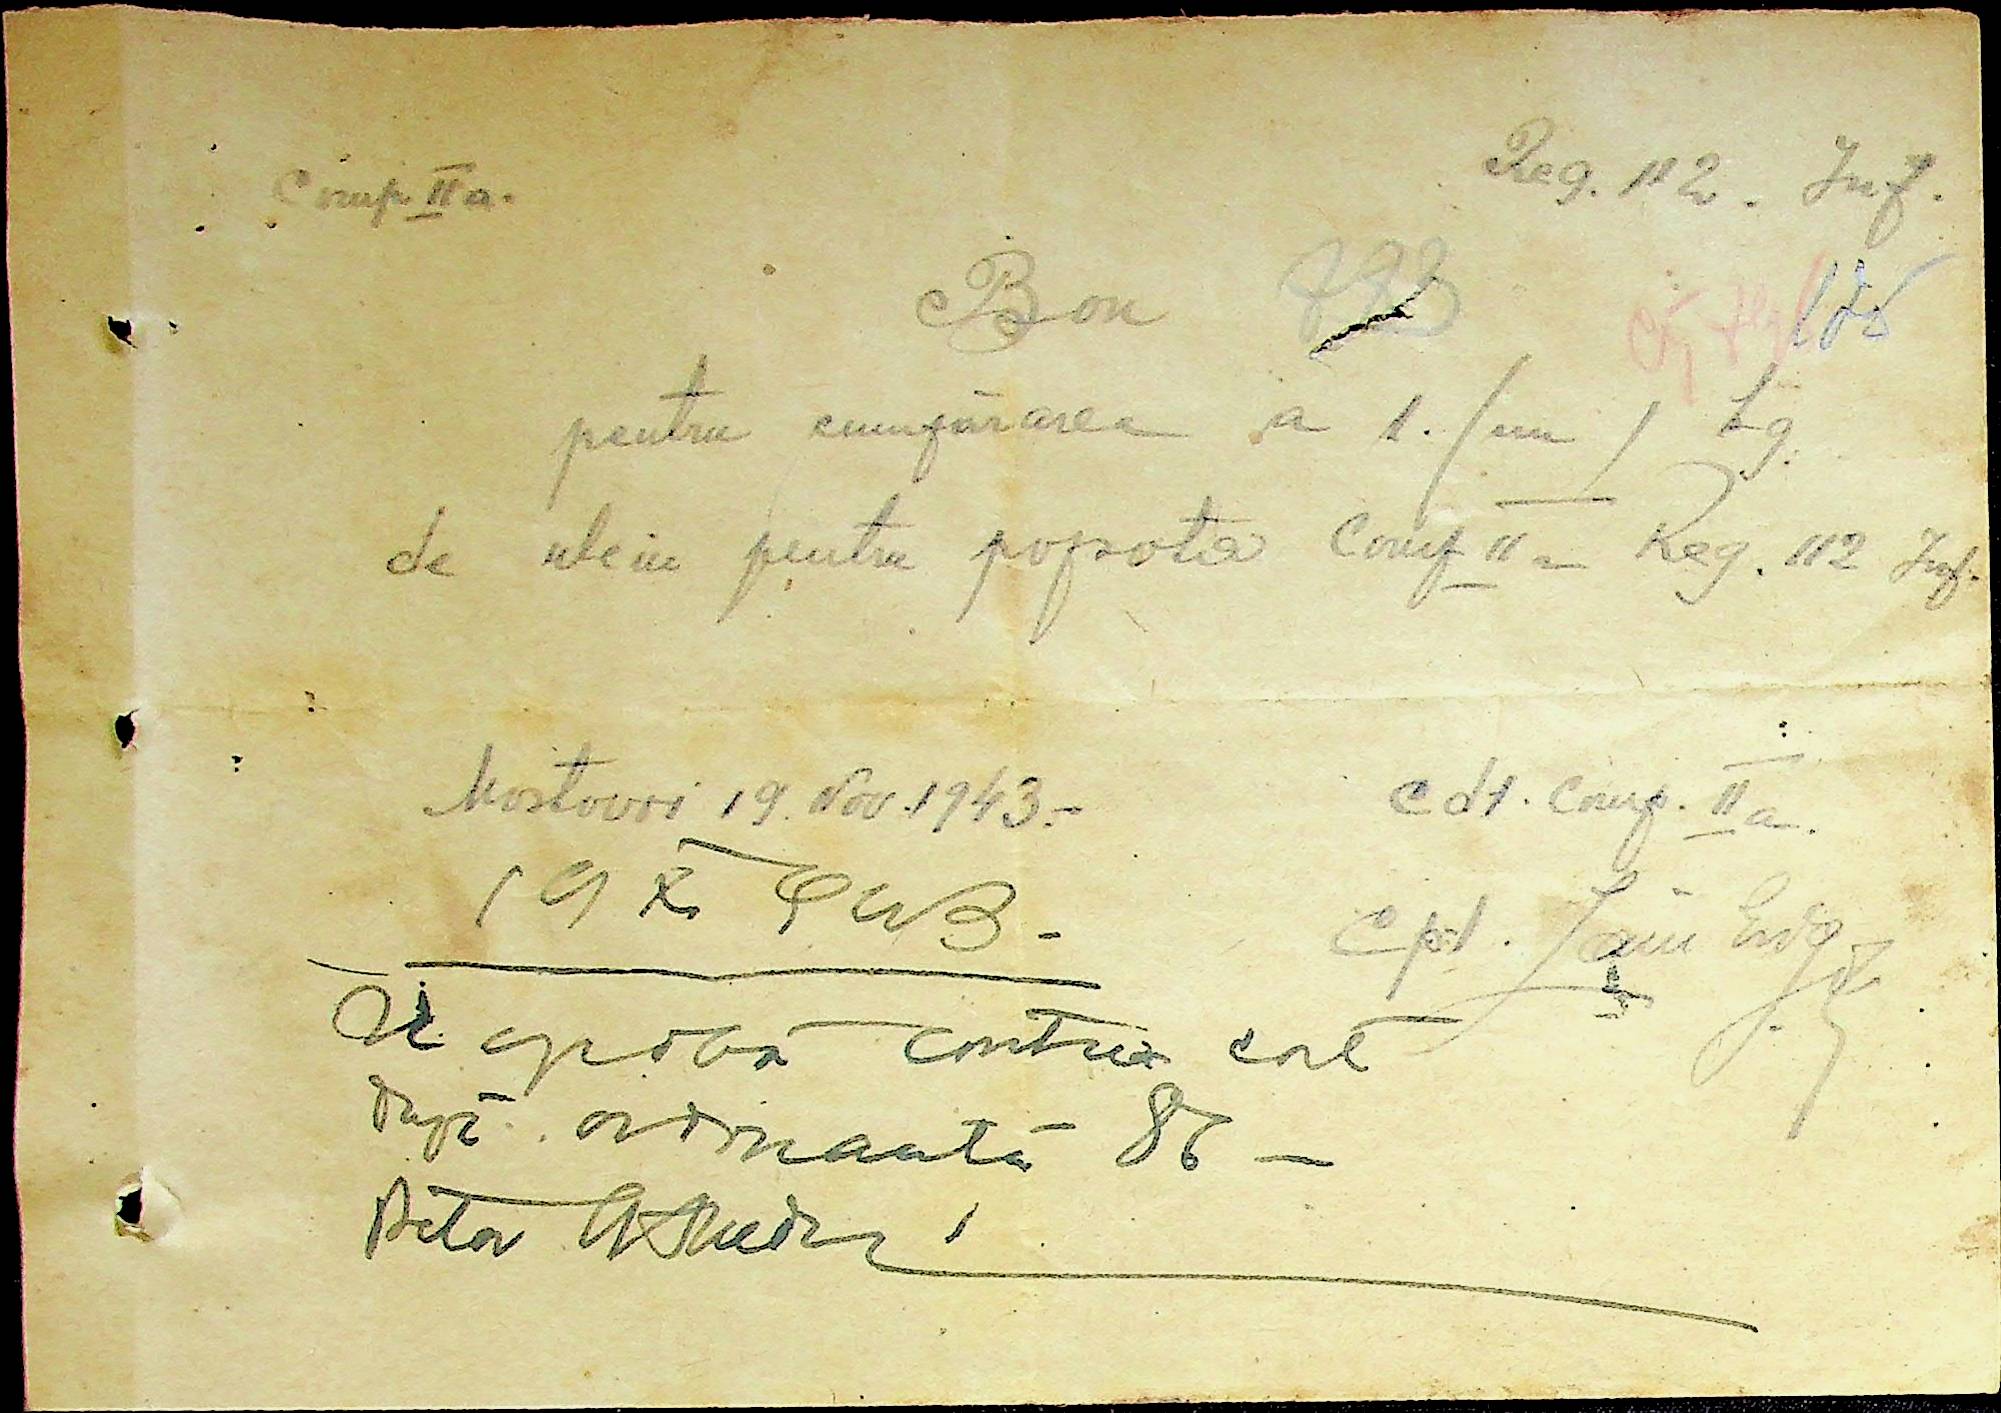 Comp. II a.
Reg. 112. Inf.
Bon
pentru cumpărarea a 1. (un) kg.
de uleiu pentru popota Comp II a Reg. 112 Inf.
Mostovoi 19. Nov. 1943.-
Cdt. Comp. II a.
19 XI 943.-
Cpt.
Se aprobă contra cost
după ordonanța 86 -